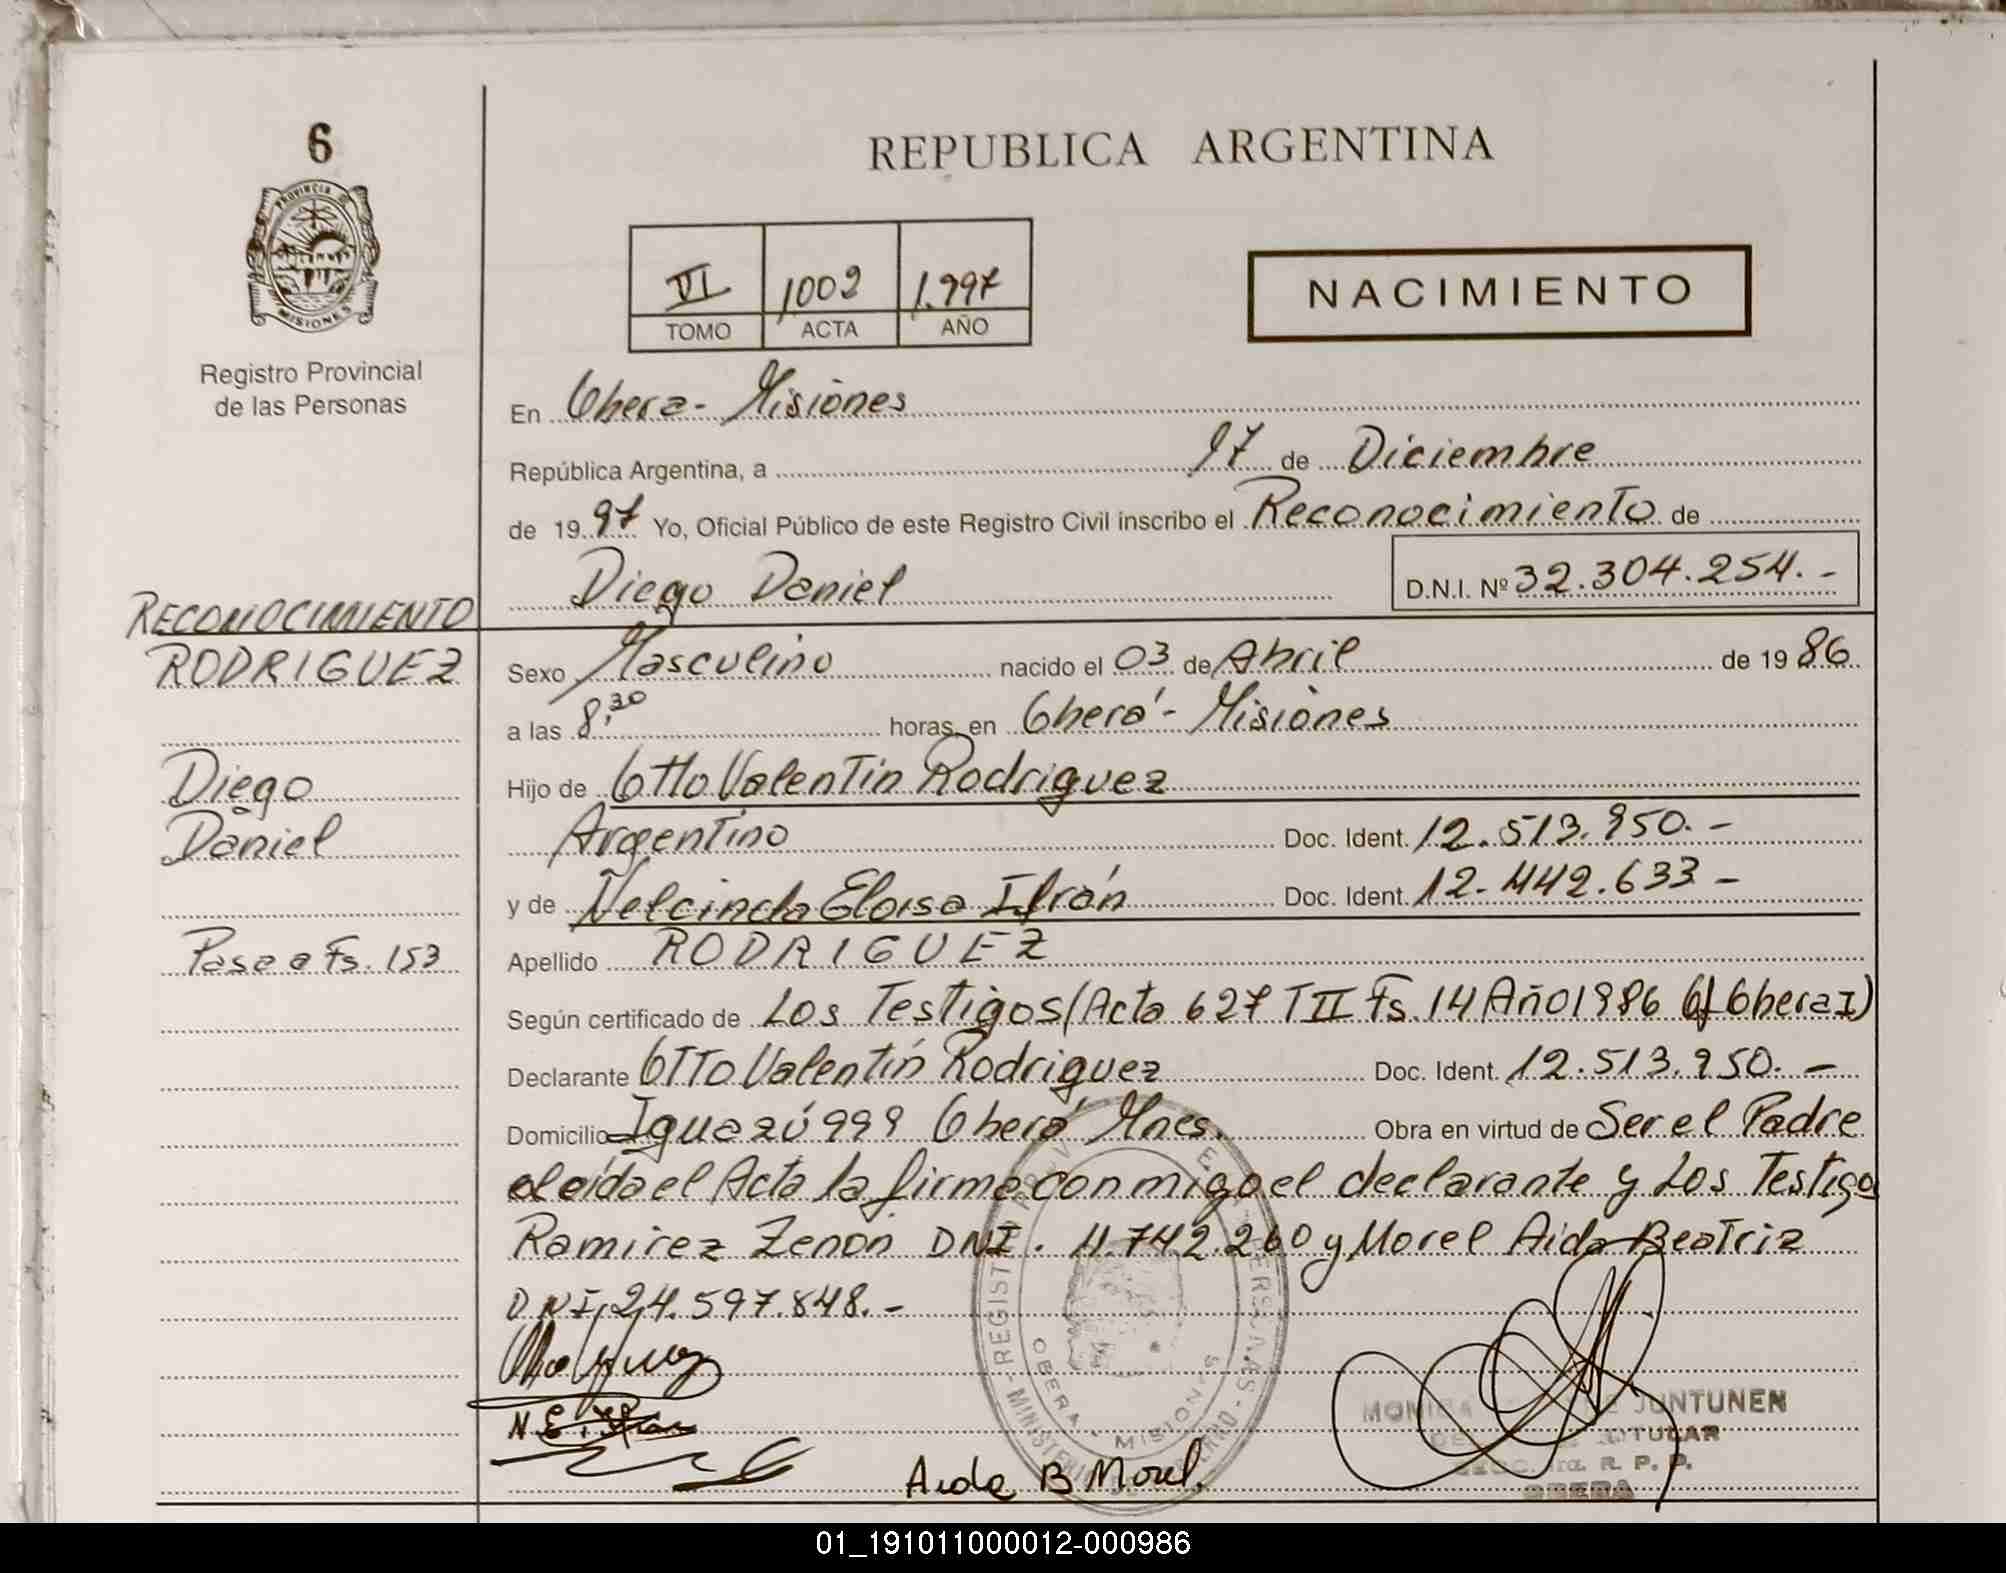 6
PROVINCIA
MISIONES
Registro Provincial
de las Personas
REPUBLICA ARGENTINA
VI 1002 1.997
TOMO ACTA AÑO
NACIMIENTO
En Oberá - Misiones
República Argentina, a 17 de Diciembre
de 1997 Yo, Oficial Público de este Registro Civil inscribo el Reconocimiento de
Diego Daniel D.N.I. Nº 32.304.254.-
RECONOCIMIENTO
RODRIGUEZ
Diego
Daniel
Pasa a Fs. 153
Sexo Masculino nacido el 03 de Abril de 1986
a las 8,30 horas, en Oberá - Misiones
Hijo de Otto Valentín Rodriguez
Argentino Doc. Ident. 12.513.950.-
y de Nelcinda Eloisa Ifrán Doc. Ident. 12.442.633-
Apellido RODRIGUEZ
Según certificado de Los Testigos (Acta 627 T II Fs. 14 Año 1986 Of Obera I)
Declarante Otto Valentín Rodriguez Doc. Ident. 12.513.950.-
Domicilio Iguazú 999 Oberá Mnes. Obra en virtud de Ser el Padre
leída el Acta la firma conmigo el declarante y Los Testigos
Ramirez Zenón DNI. 4.742.260 y Morel Aida Beatriz
D.N.I. 24.597.848.-
N.E. Ifran
Aida B Morel.
OBERA - MISIONES
JUNTUNEN
R. P. P.
OBERA
01_191011000012-000986